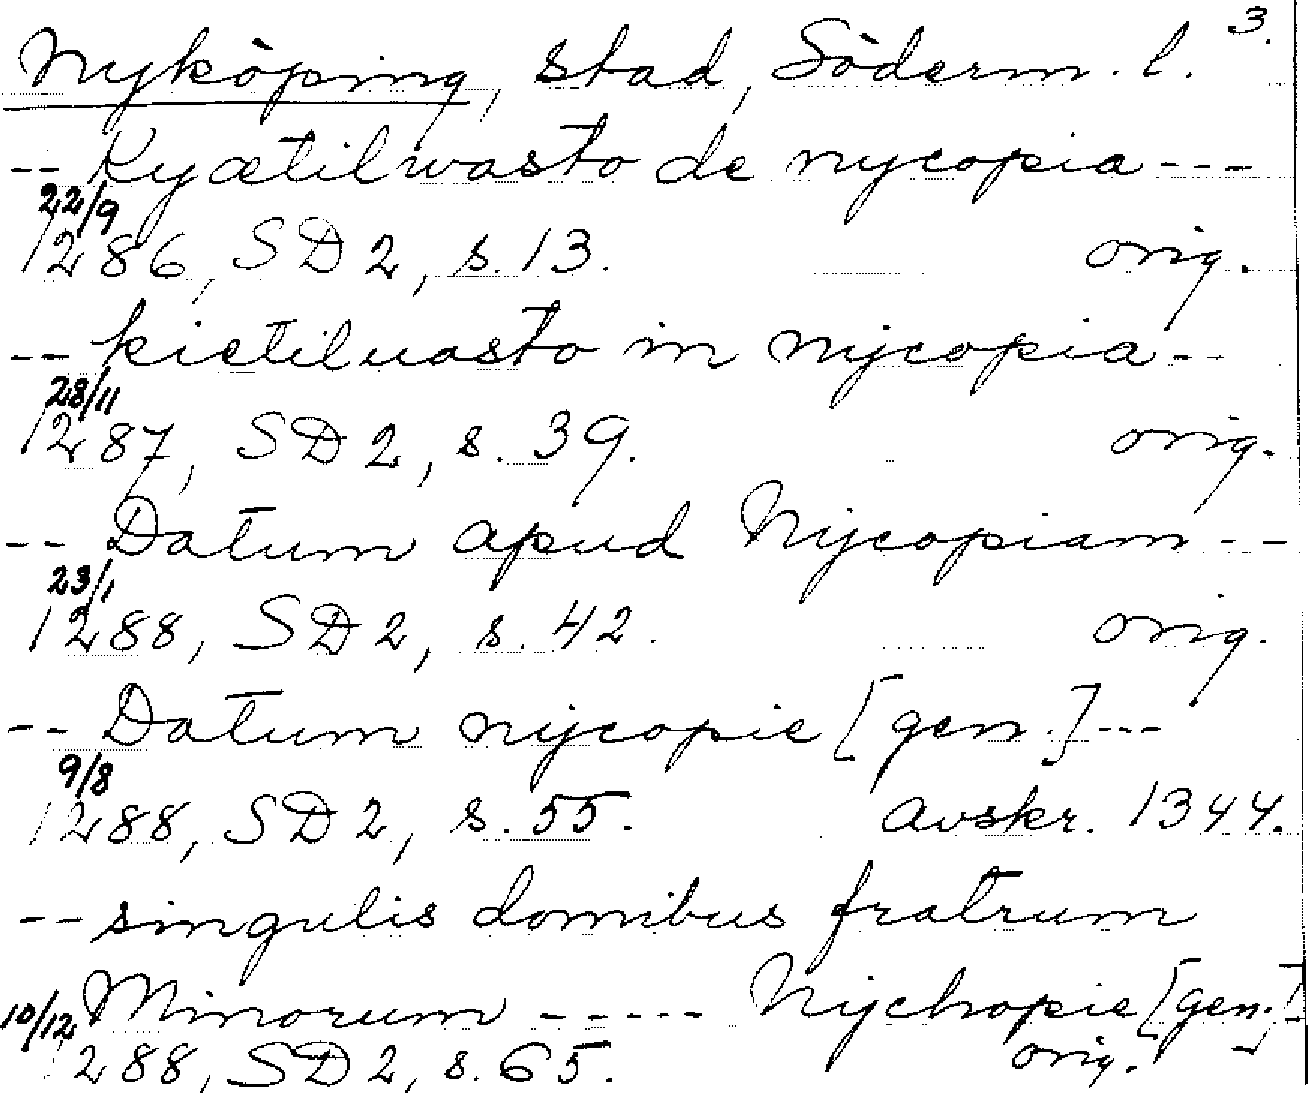 3.
Nyköping, stad, Söderm. l.
-- Kyætilwasto de nycopia ---
22/9
1286, SD 2, s. 13. orig.
-- kietiluasto in nycopia --
28/11
1287, SD 2, s. 39. orig.
-- Datum apud Nycopiam --
23/1
1288, SD 2, s. 42. orig.
-- Datum nycopie [gen.] ---
9/8
1288, SD 2, s. 55. avskr. 1344.
-- singulis domibus fratrum
10/12 Minorum ----- Nychopie [gen.]
1288, SD 2, s. 65. orig.